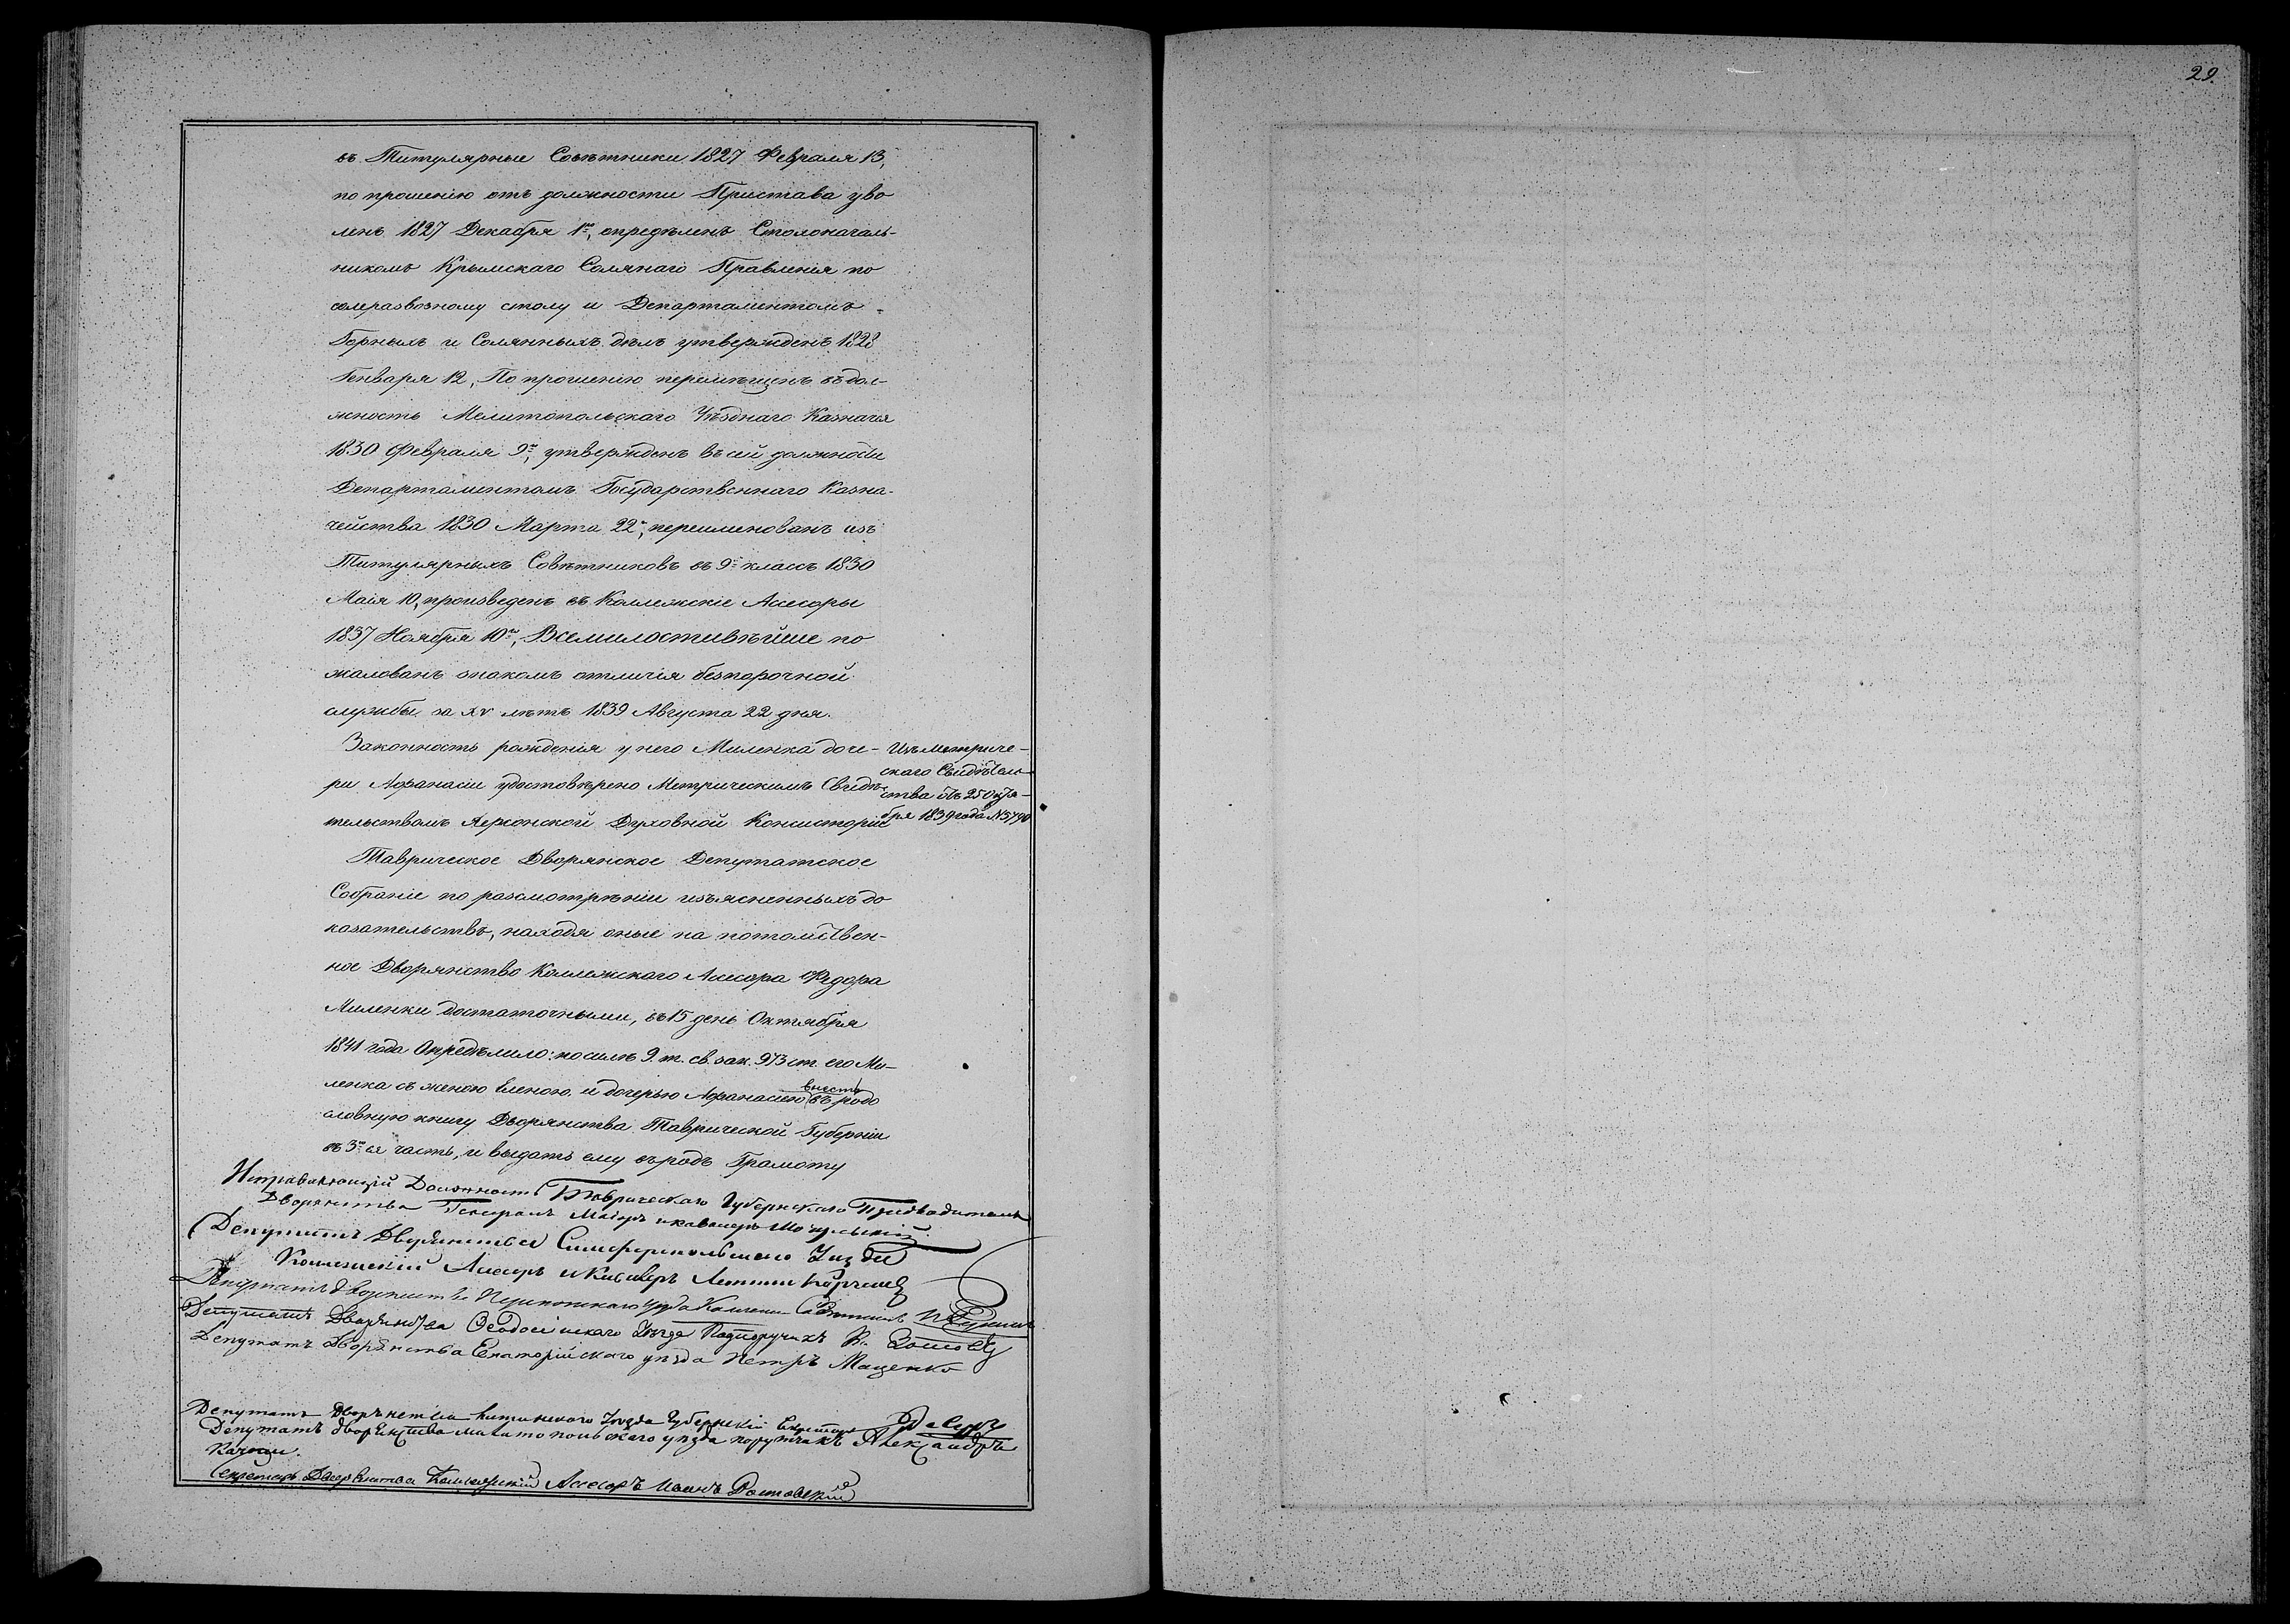 29.
въ Титулярные Совѣтники 1827 Февраля 13,
по прошенію отъ должности Пристава уво
ленъ 1827 Декабря 1го, опредѣленъ Столоначаль-
никомъ Крымскаго Солянаго Правленія по
солеразвозному столу и Департаментомъ
Горныхъ и Солянныхъ дѣлъ утвержденъ 1828
Генваря 12, По прошенію перемѣщенъ въ дол-
жность Мелитопольскаго Уѣзднаго Казначея
1830 Февраля 9го, утвержденъ въ сей должности
Департаментомъ Государственнаго Казна-
чейства 1830 Марта 22го, переименованъ изъ
Титулярныхъ Совѣтниковъ въ 9й классъ 1830
Маія 10, произведенъ въ Коллежскіе Асесоры
1837 Ноября 10го, Всемилостивѣйше по
жалованъ знакомъ отличія безпорочной
службы за XV лѣтъ 1839 Августа 22 дня.
Законность рожденія у него Миленка доче-
ри Афанасіи удостовѣрено Метрическимъ Свидѣ-
тельствомъ Херсонской Духовной Консисторіи
Изъ Метриче-
скаго Свидѣтель-
ства отъ 25 Октя-
бря 1839 года №5790
Таврическое Дворянское Депутатское
Собраніе по разсмотрѣніи изъясненныхъ до
казательствъ, находя оные на потомствен-
ное Дворянство Коллежскаго Асесора Федора
Миленки достаточными, въ 15 день Октября
1841 года Опредѣлило: по силѣ 9. т. св. зак. 973 ст. его Ми-
ленка съ женою Еленою и дочерью Афанасіею внесть въ родо
словную книгу Дворянства Таврической Губерніи
въ 3ю ея часть, и выдать ему въ родъ Грамоту
Исправляющій Должность Таврическаго Губернскаго Предводителя
Дворянства Генералъ Маіоръ и кавалеръ
Депутатъ Дворянства Симферопольскаго Уѣзда
Коллежскій Асесоръ и Кавалеръ
Депутатъ Дворянства Перекопскаго Уѣзда
Депутатъ Дворянства Ѳеодосійскаго Уѣзда Подпоручикъ
Депутатъ Дворянства Евпаторійскаго уѣзда Петръ Маценко
Депутатъ Дворянства Уѣзда Губернскій Секретарь
Депутатъ дворянства Мелитопольскаго уѣзда поручикъ Александръ
Секретарь Дворянства Коллежскій Асесоръ Иванъ